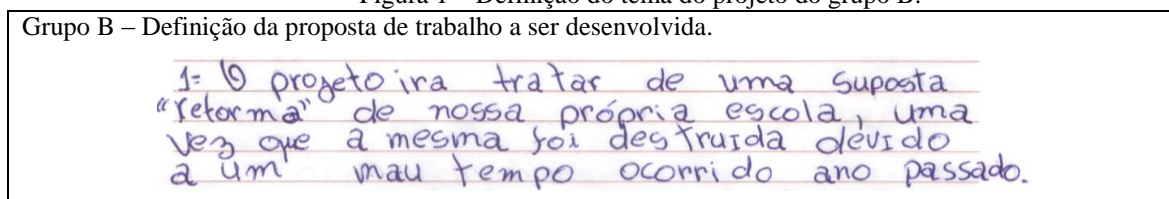 Figura 1 – Definição do tema do projeto do grupo B.
Grupo B – Definição da proposta de trabalho a ser desenvolvida.
1= O projeto ira tratar de uma suposta
"reforma" de nossa própria escola, uma
vez que a mesma foi destruida devido
a um mau tempo ocorrido ano passado.